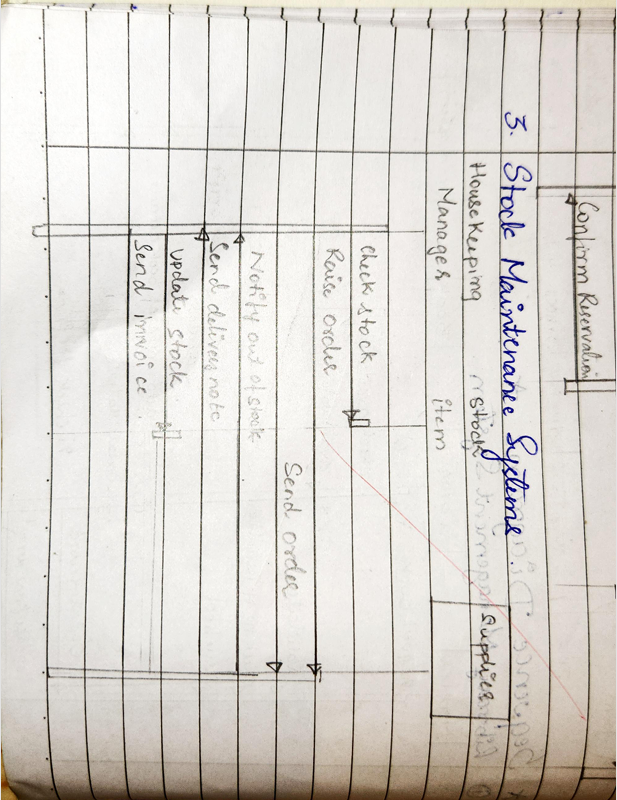 Confirm Reservation
3. Stock Maintenance Systems.
Housekeeping Stock Supplies
Manager item
check stock
Raise order
Send order
Notify out of stock
Send delivery note
update stock
Send invoice